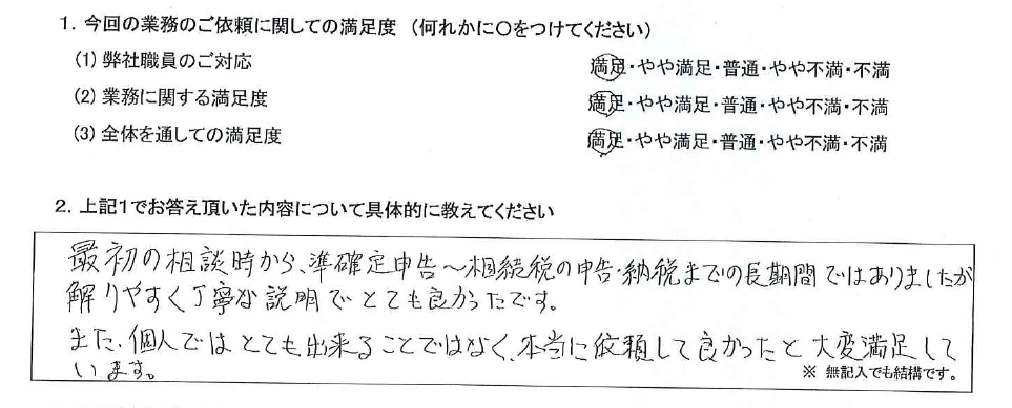 1. 今回の業務のご依頼に関しての満足度 (何れかに○をつけてください)
(1) 弊社職員のご対応 満足・やや満足・普通・やや不満・不満
(2) 業務に関する満足度 満足・やや満足・普通・やや不満・不満
(3) 全体を通しての満足度 満足・やや満足・普通・やや不満・不満
2. 上記1でお答え頂いた内容について具体的に教えてください
最初の相談時から、準確定申告～相続税の申告・納税までの長期間ではありましたが
解りやすく丁寧な説明でとても良かったです。
また、個人ではとても出来ることではなく、本当に依頼して良かったと大変満足して
います。
※ 無記入でも結構です。